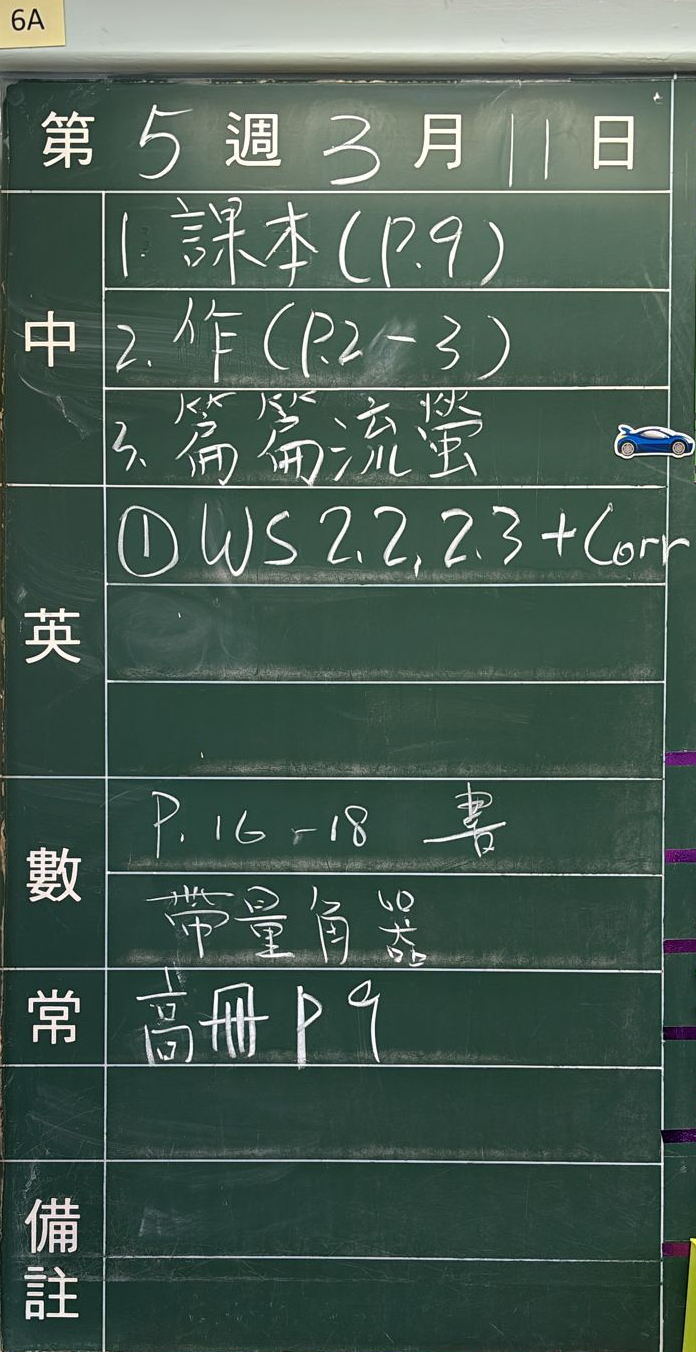 6A
第 5 週 3 月 11 日
中
1. 課本(P.9)
2. 作(P.2-3)
3. 篇篇流螢
英
① WS 2.2, 2.3 + Corr
數
P. 16 - 18 書
帶量角器
常
高冊 P 9
備註